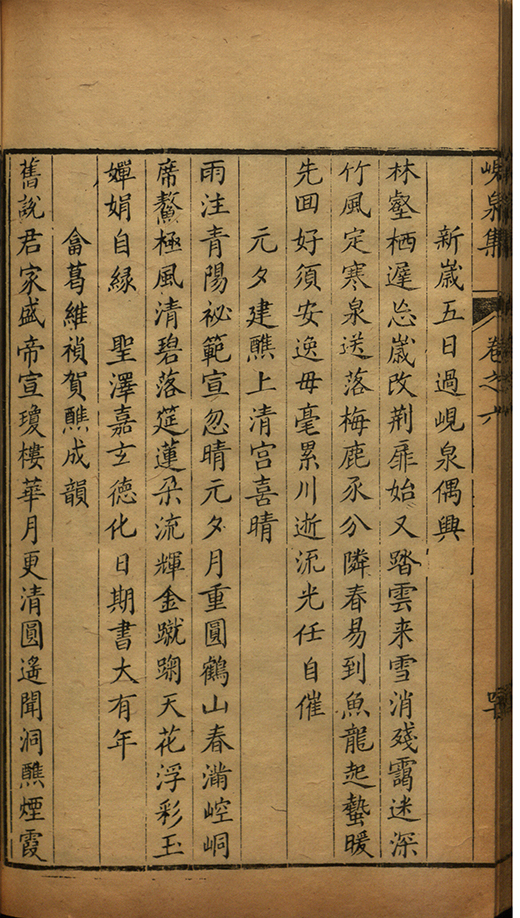 峴泉集 卷之六
新歲五日過峴泉偶興
林壑栖遲忘歲改荆扉始又踏雲来雪消殘靄迷深
竹風定寒泉送落梅鹿豕分隣春易到魚龍起蟄暖
先囬好須安逸毋毫累川逝流光任自催
元夕建醮上清宫喜晴
雨注青陽祕範宣忽晴元夕月重圓鶴山春滿崆峒
席鰲極風清碧落筵蓮朶流輝金蹴踘天花浮彩玉
嬋娟自縁 聖澤嘉玄德化日期書大有年
畣葛維禎賀醮成韻
舊説君家盛帝宣瓊樓華月更清圓遙聞洞醮煙霞